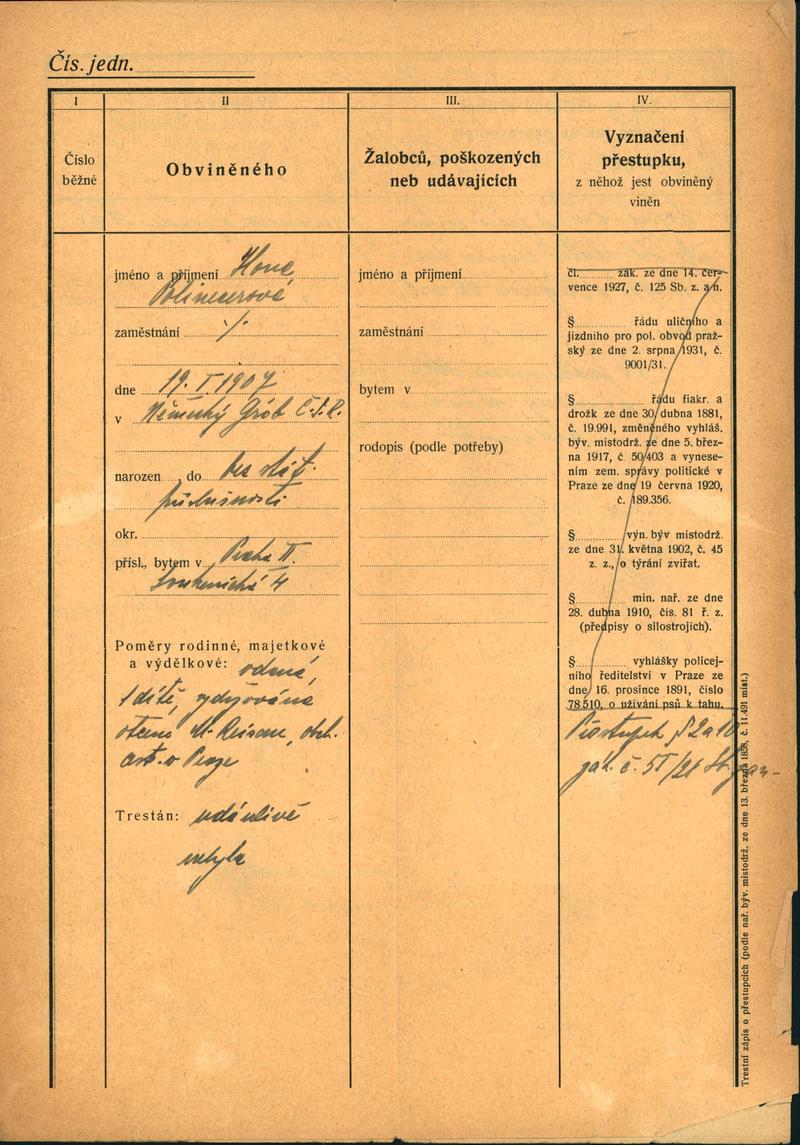 Čís. jedn.
I
II
III.
IV.
Číslo
běžné
Obviněného
Žalobců, poškozených
neb udávajících
Vyznačení
přestupku,
z něhož jest obviněný
viněn
jméno a příjmení Ilona
zaměstnání ./.
dne 19. I 1907
v Německý Grob Č.S.R.
narozen , do bez stát.
příslušnosti
okr.
přísl., bytem v Praha II.
Soukenická 4
Poměry rodinné, majetkové
a výdělkové: vdaná,
1 dítě, vydržována
otcem M. obch.
v Praze
Trestán: udánlivě
nebyla
jméno a příjmení
zaměstnání
bytem v
rodopis (podle potřeby)
čl. zák. ze dne 14. čer-
vence 1927, č. 125 Sb. z. a n.
§ řádu uličního a
jízdního pro pol. obvod praž-
ský ze dne 2. srpna 1931, č.
9001/31.
§ řádu fiakr. a
drožk ze dne 30 dubna 1881,
č. 19.991, změněného vyhláš.
býv. místodrž. ze dne 5. břez-
na 1917, č. 50/403 a vynese-
ním zem. správy politické v
Praze ze dne 19 června 1920,
č. 189.356.
§ výn. býv místodrž.
ze dne 31. května 1902, č. 45
z. z., o týrání zvířat.
§ min. nař. ze dne
28. dubna 1910, čís. 81 ř. z.
(předpisy o silostrojích).
§ vyhlášky policej-
ního ředitelství v Praze ze
dne 16. prosince 1891, číslo
78 510, o užívání psů k tahu.
Přestupek § 2 a 10
zák. č. 51/21 Sb. z. a n.
Trestní zápis o přestupcích (podle nař. býv. místodrž. ze dne 13. března 1858, č. 11.491 míst.)